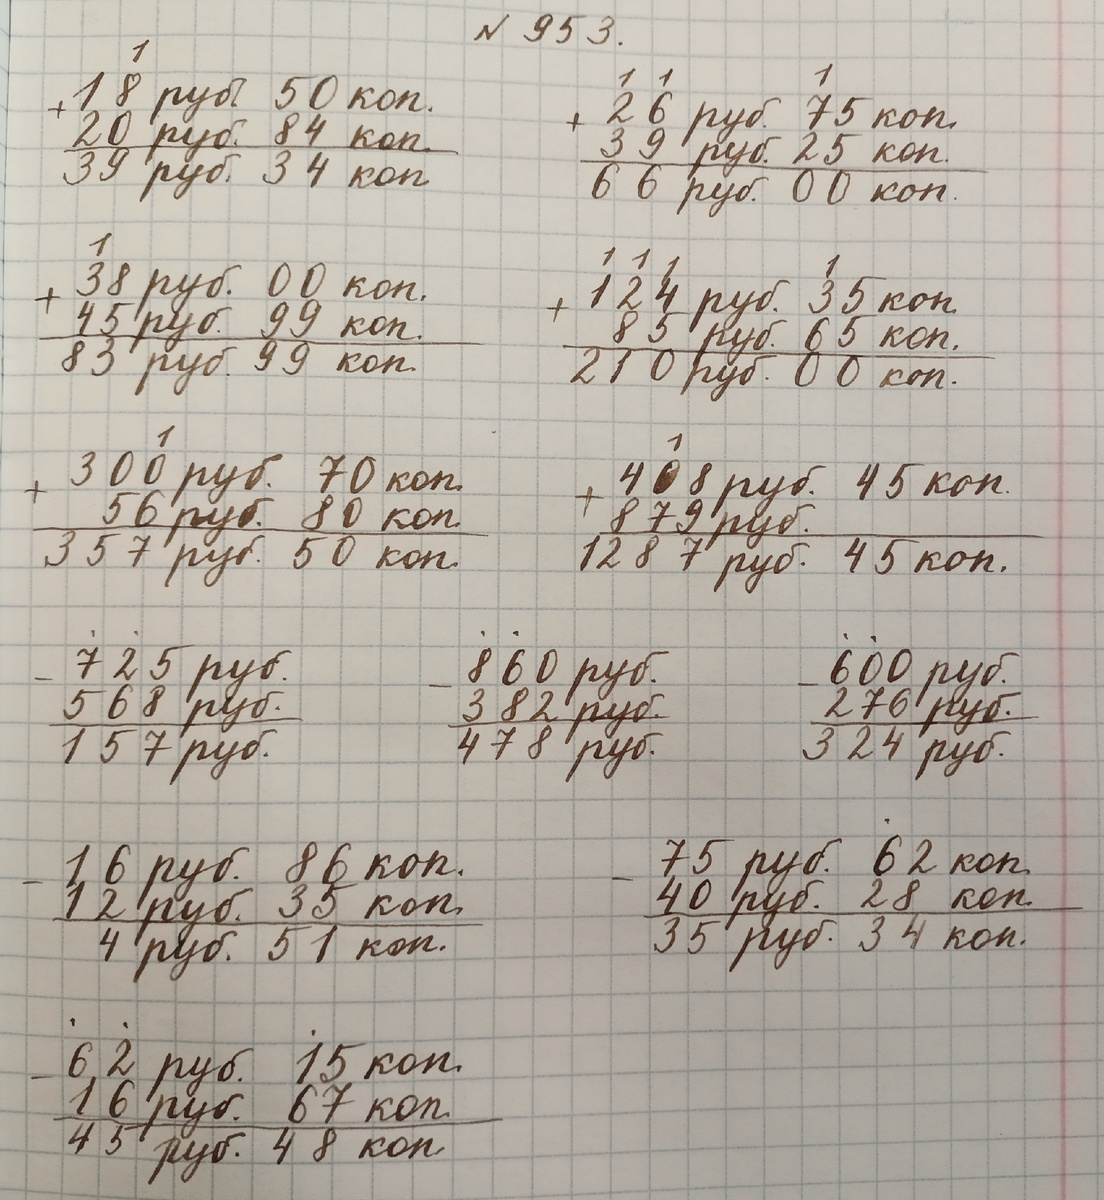 N 953.
1
+ 18 руб. 50 коп.
20 руб. 84 коп.
39 руб. 34 коп.
1 1 1
+ 26 руб. 75 коп.
39 руб. 25 коп.
66 руб. 00 коп.
1
+ 38 руб. 00 коп.
45 руб. 99 коп.
83 руб. 99 коп.
1 1 1 1
+ 124 руб. 35 коп.
85 руб. 65 коп.
210 руб. 00 коп.
1
+ 300 руб. 70 коп.
56 руб. 80 коп.
357 руб. 50 коп.
1
+ 408 руб. 45 коп.
879 руб.
1287 руб. 45 коп.
- 725 руб.
568 руб.
157 руб.
- 860 руб.
382 руб.
478 руб.
- 600 руб.
276 руб.
324 руб.
- 16 руб. 86 коп.
12 руб. 35 коп.
4 руб. 51 коп.
- 75 руб. 62 коп.
40 руб. 28 коп.
35 руб. 34 коп.
- 62 руб. 15 коп.
16 руб. 67 коп.
45 руб. 48 коп.